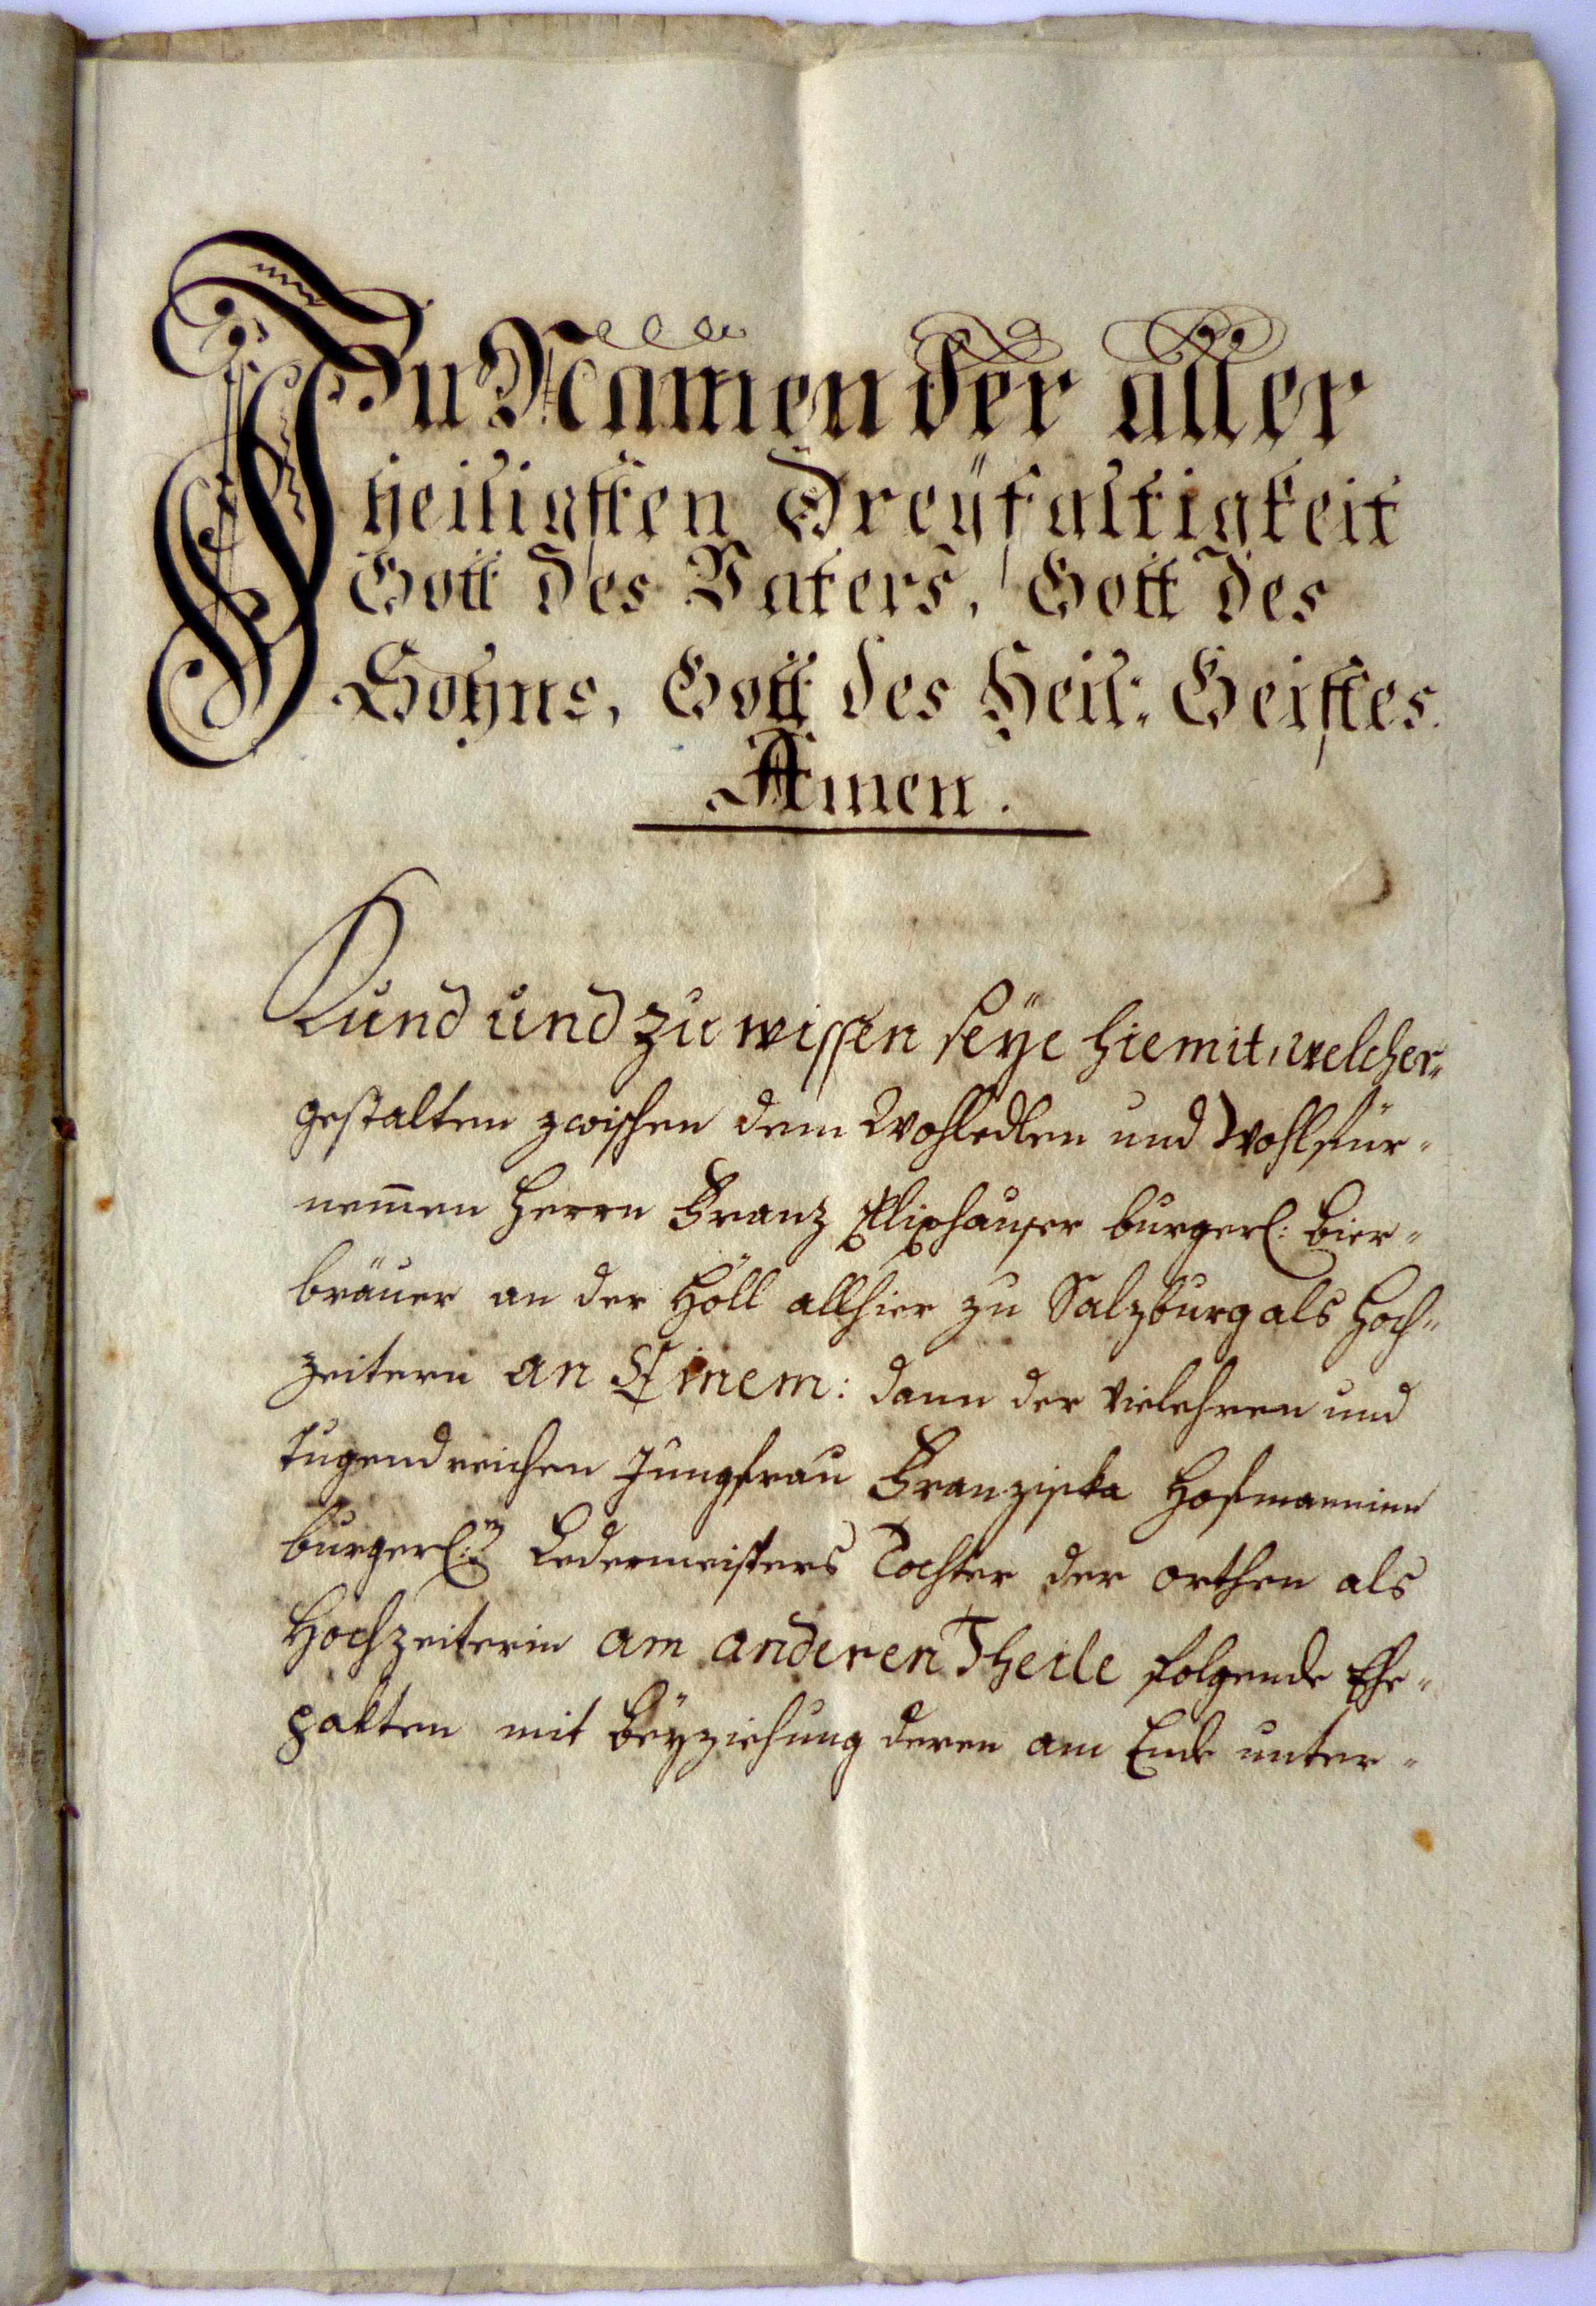 In Namen der aller
heiligsten Dreÿfaltigkeit
Gott des Vaters, Gott des
Sohns, Gott des Heil: Geistes.
Amen.
Kund und zu wissen seÿe hiemit, welcher„
gestalten zwischen dem Wohledlen und Wohlfür„
nem̄en Herrn Franz burgerl: Bier„
bräuer an der Höll allhier zu Salzburg als Hoch„
zeitern an Einem: dann der vielehren und
tugendreichen Jungfrau Franziska Hofmaninn
burgerl:n Ledermeisters Tochter der orthen als
Hochzeiterin am anderen Theile folgende Ehe„
pakten mit Beÿziehung deren am Ende unter„